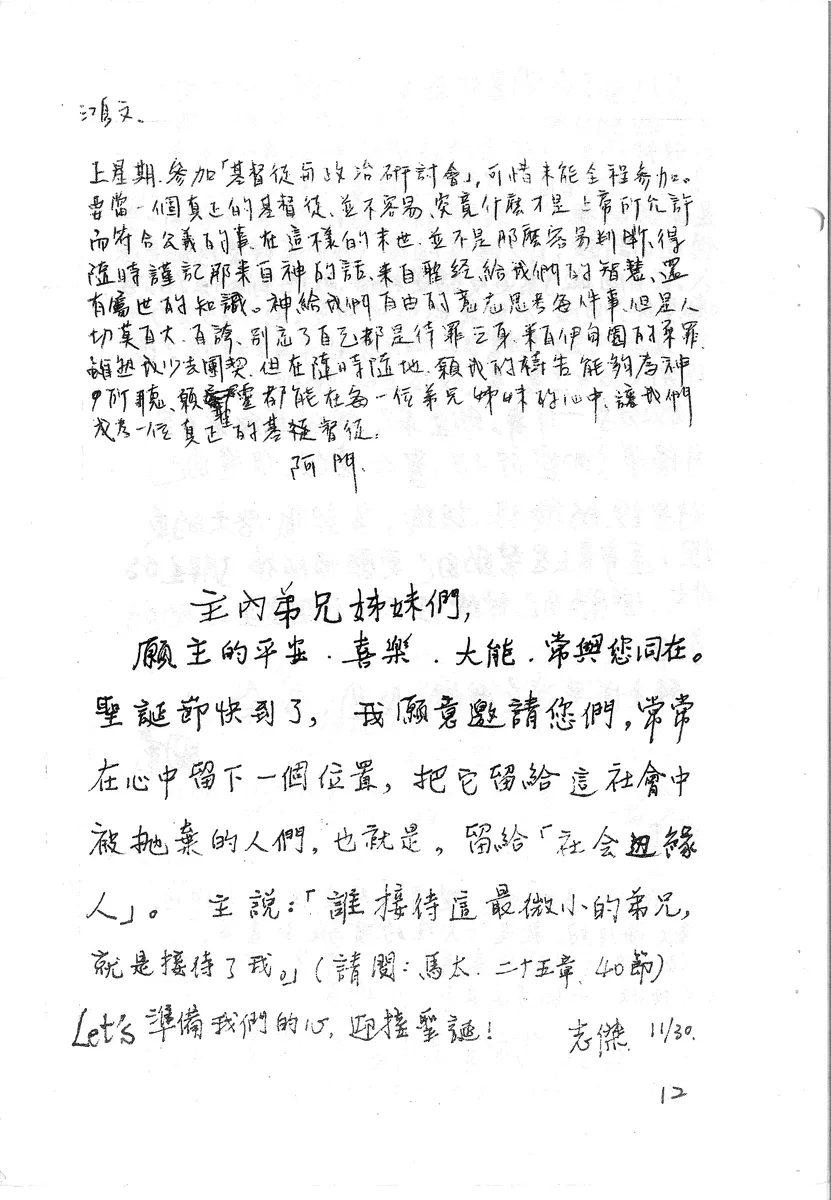 鴻文.
上星期.參加「基督徒與政治研討會」,可惜未能全程參加。
要當一個真正的基督徒、並不容易、究竟什麼才是上帝所允許
而符合公義的事.在這樣的末世.並不是那麼容易判斷、得
隨時謹記那來自神的話、來自聖經給我們的智慧、還
有屬世的知識。神給我們自由的意志思考每件事、但是人
切莫自大、自誇、別忘了自己都是待罪之身、來自伊甸園的原罪.
雖然我少去團契、但在隨時隨地.願我的禱告能夠為神
所聽、願聖靈都能在每一位弟兄姊妹的心中、讓我們
成為一位真正的基督徒.
阿門.
主內弟兄姊妹們,
願主的平安.喜樂.大能.常與您同在。
聖誕節快到了, 我願意邀請您們,常常
在心中留下一個位置, 把它留給這社會中
被拋棄的人們, 也就是, 留給「社会边緣
人」。 主說:「誰接待這最微小的弟兄,
就是接待了我。」(請閱:馬太.二十五章、40節)
Let's 準備我們的心, 迎接聖誕! 志傑. 11/30.
12